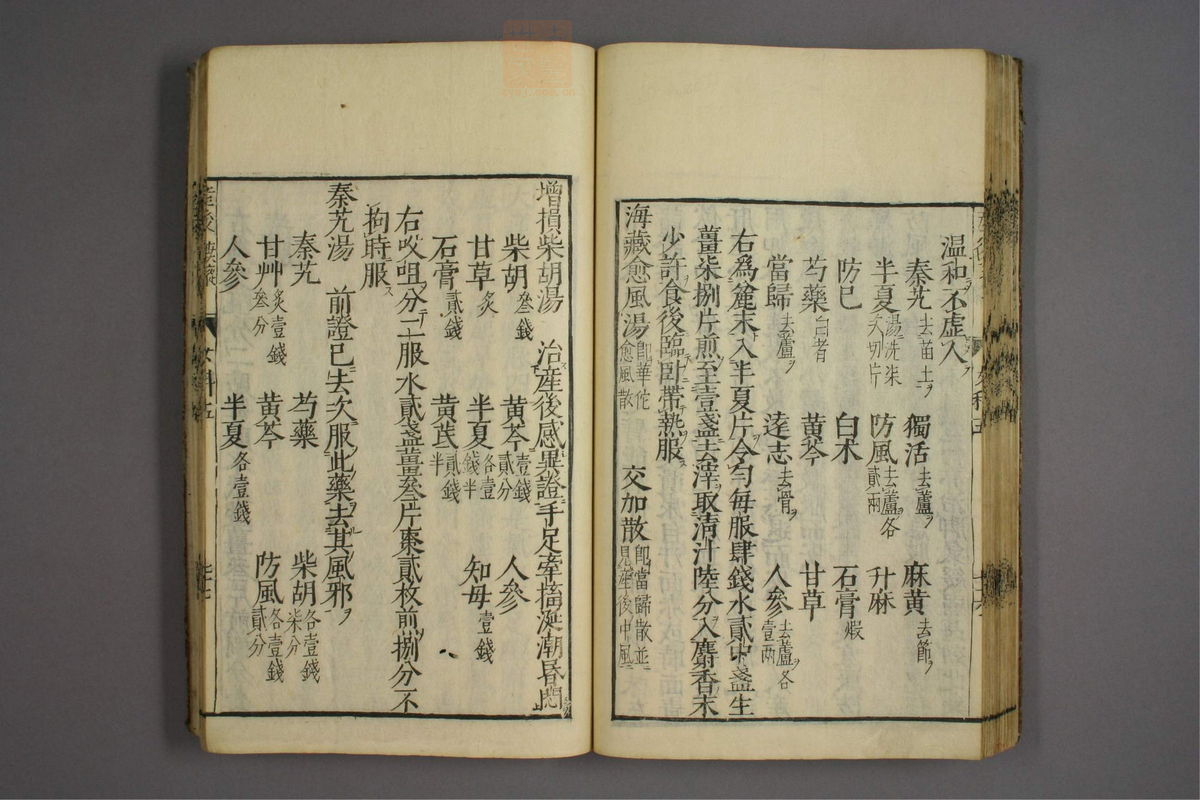 温和不虚入
秦艽去苗土 獨活去蘆 麻黄去節
半夏湯洗柒次切片 防風去蘆各貳兩 升麻
防巳 白术 石膏煅
芍藥白者 黄芩 甘草
當歸去蘆 逺志去骨 人參去蘆各壹兩
右為麄末入半夏片令匀毎服肆錢水貳中盞生
薑柒捌片煎至壹盞去滓取淸汁陸分入麝香末
少許食後臨卧帶熱服
海藏愈風湯卽華佗愈風散 交加散卽當歸散並見產後中風
增損柴胡湯 治產後感異證手足牽搐涎潮昏悶
柴胡叄錢 黄芩壹錢貳分 人參
甘草炙 半夏各壹錢半 知母壹錢
石膏貳錢 黄芪貳錢半
右㕮咀分二服水貳盞薑叄片棗貳枚前捌分不
拘時服
秦艽湯 前證巳去次服此藥去其風邪
秦艽 芍藥 柴胡各壹錢柒分
甘艸炙壹錢叄分 黄芩 防風各壹錢貳分
人參 半夏各壹錢
七十七